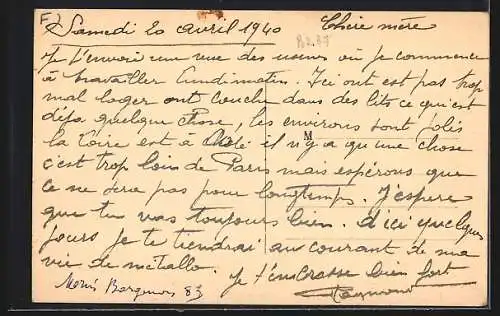 Samedi 20 avril 1940 Chère mère
Je t'envoie une vue des usines où je commence
à travailler Lundi matin. Ici ont est pas trop
mal loger ont couche dans des lits ce qui est
déjà quelque chose, les environs sont jolis
la Loire est à côté il n'y a qu'une chose
c'est trop loin de Paris mais espérons que
ce ne sera pas pour longtemps. J'espère
que tu vas toujours bien. d'ici quelques
jours je te tiendrai au courant de ma
vie de métallo. Je t'embrasse bien fort
Raymond
83
M